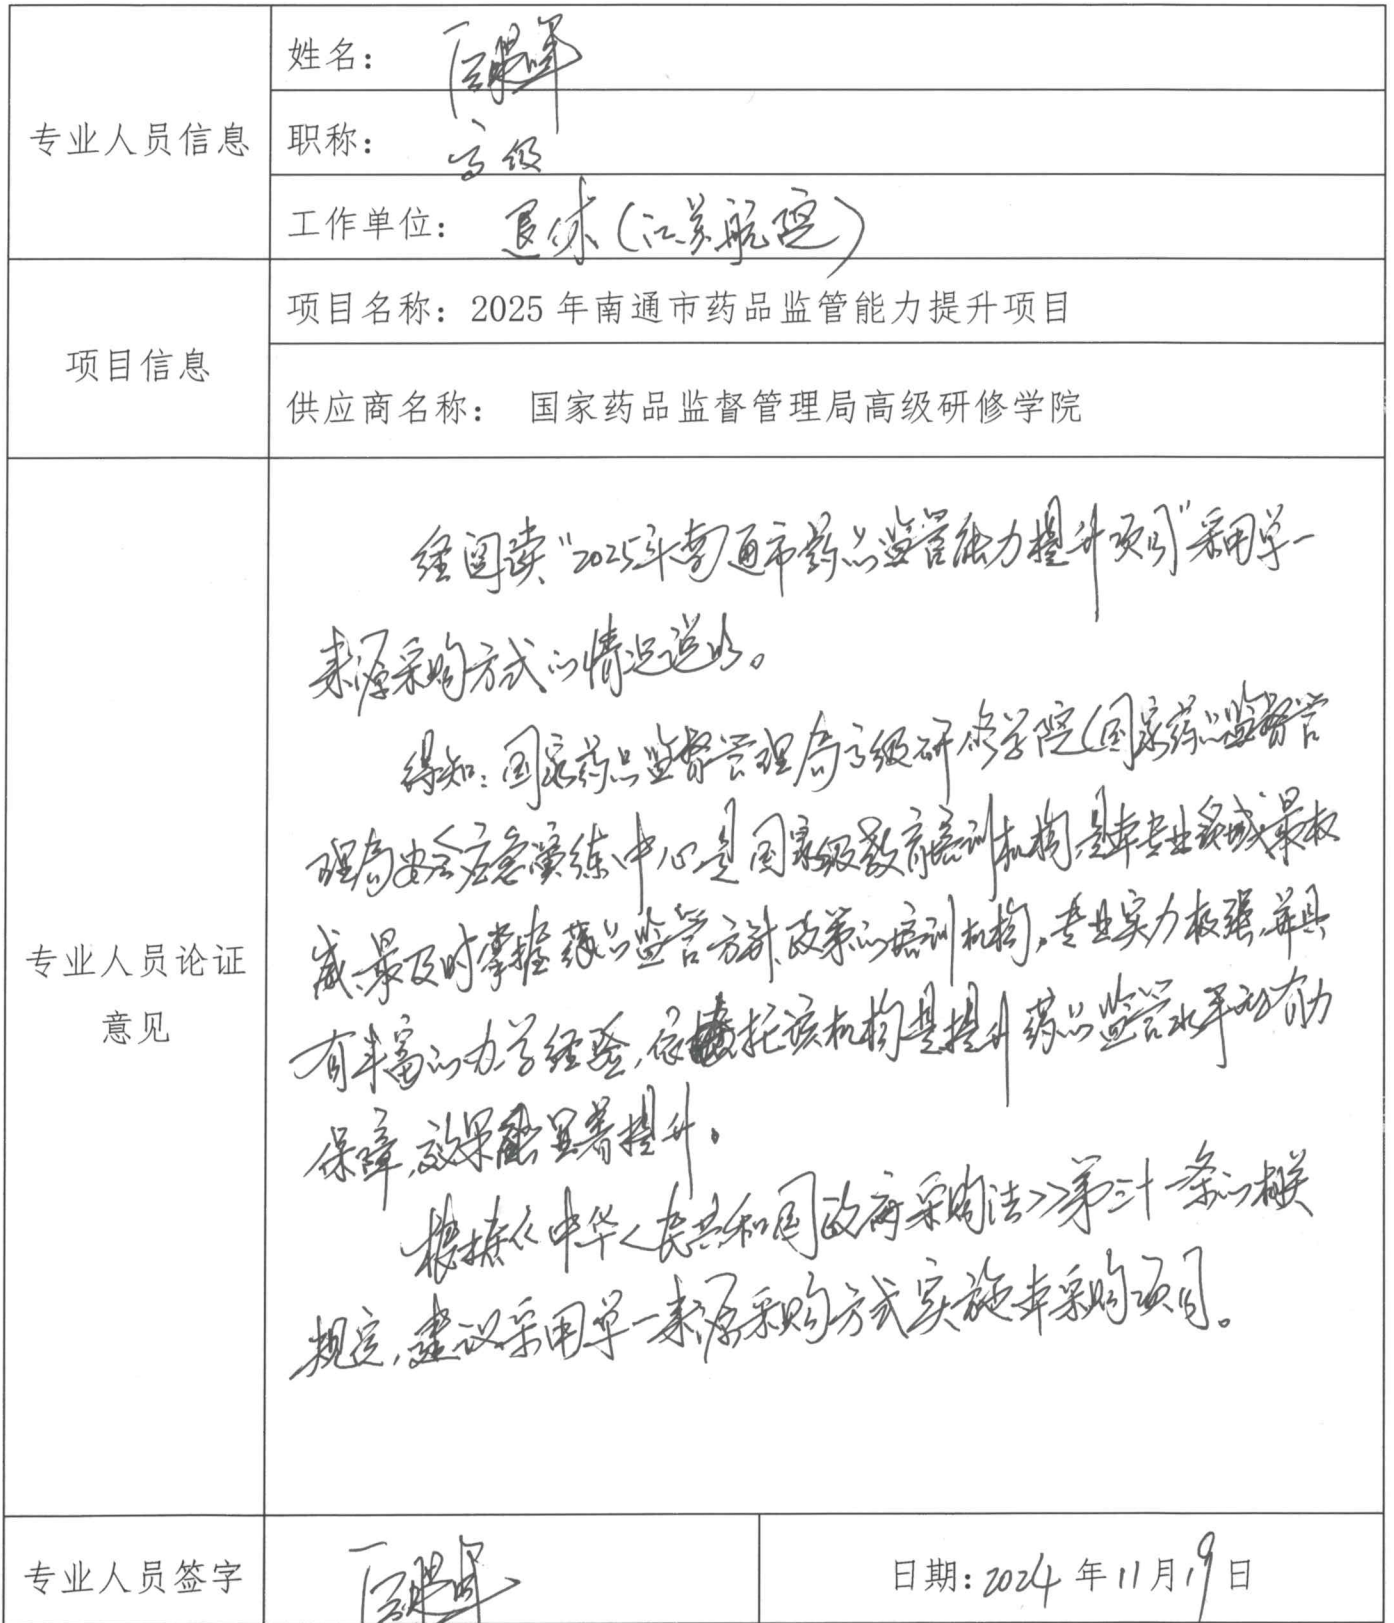 专业人员信息
姓名：
职称：高级
工作单位：退休（江苏航院）
项目信息
项目名称：2025 年南通市药品监管能力提升项目
供应商名称： 国家药品监督管理局高级研修学院
专业人员论证
意见
经阅读“2025年南通市药品监管能力提升项目”采用单一
来源采购方式的情况说明。
得知：国家药品监督管理局高级研修学院（国家药品监督管
理局安全应急演练中心是国家级教育培训机构，是本专业领域最权
威、最及时掌握药品监管方针、政策的培训机构。专业实力极强，并具
有丰富的办学经验，依托该机构是提升药品监管水平的有力
保障，效果能显著提升。
根据《中华人民共和国政府采购法》第三十一条的相关
规定，建议采用单一来源采购方式实施本采购项目。
专业人员签字
日期：2024 年 11 月 19 日